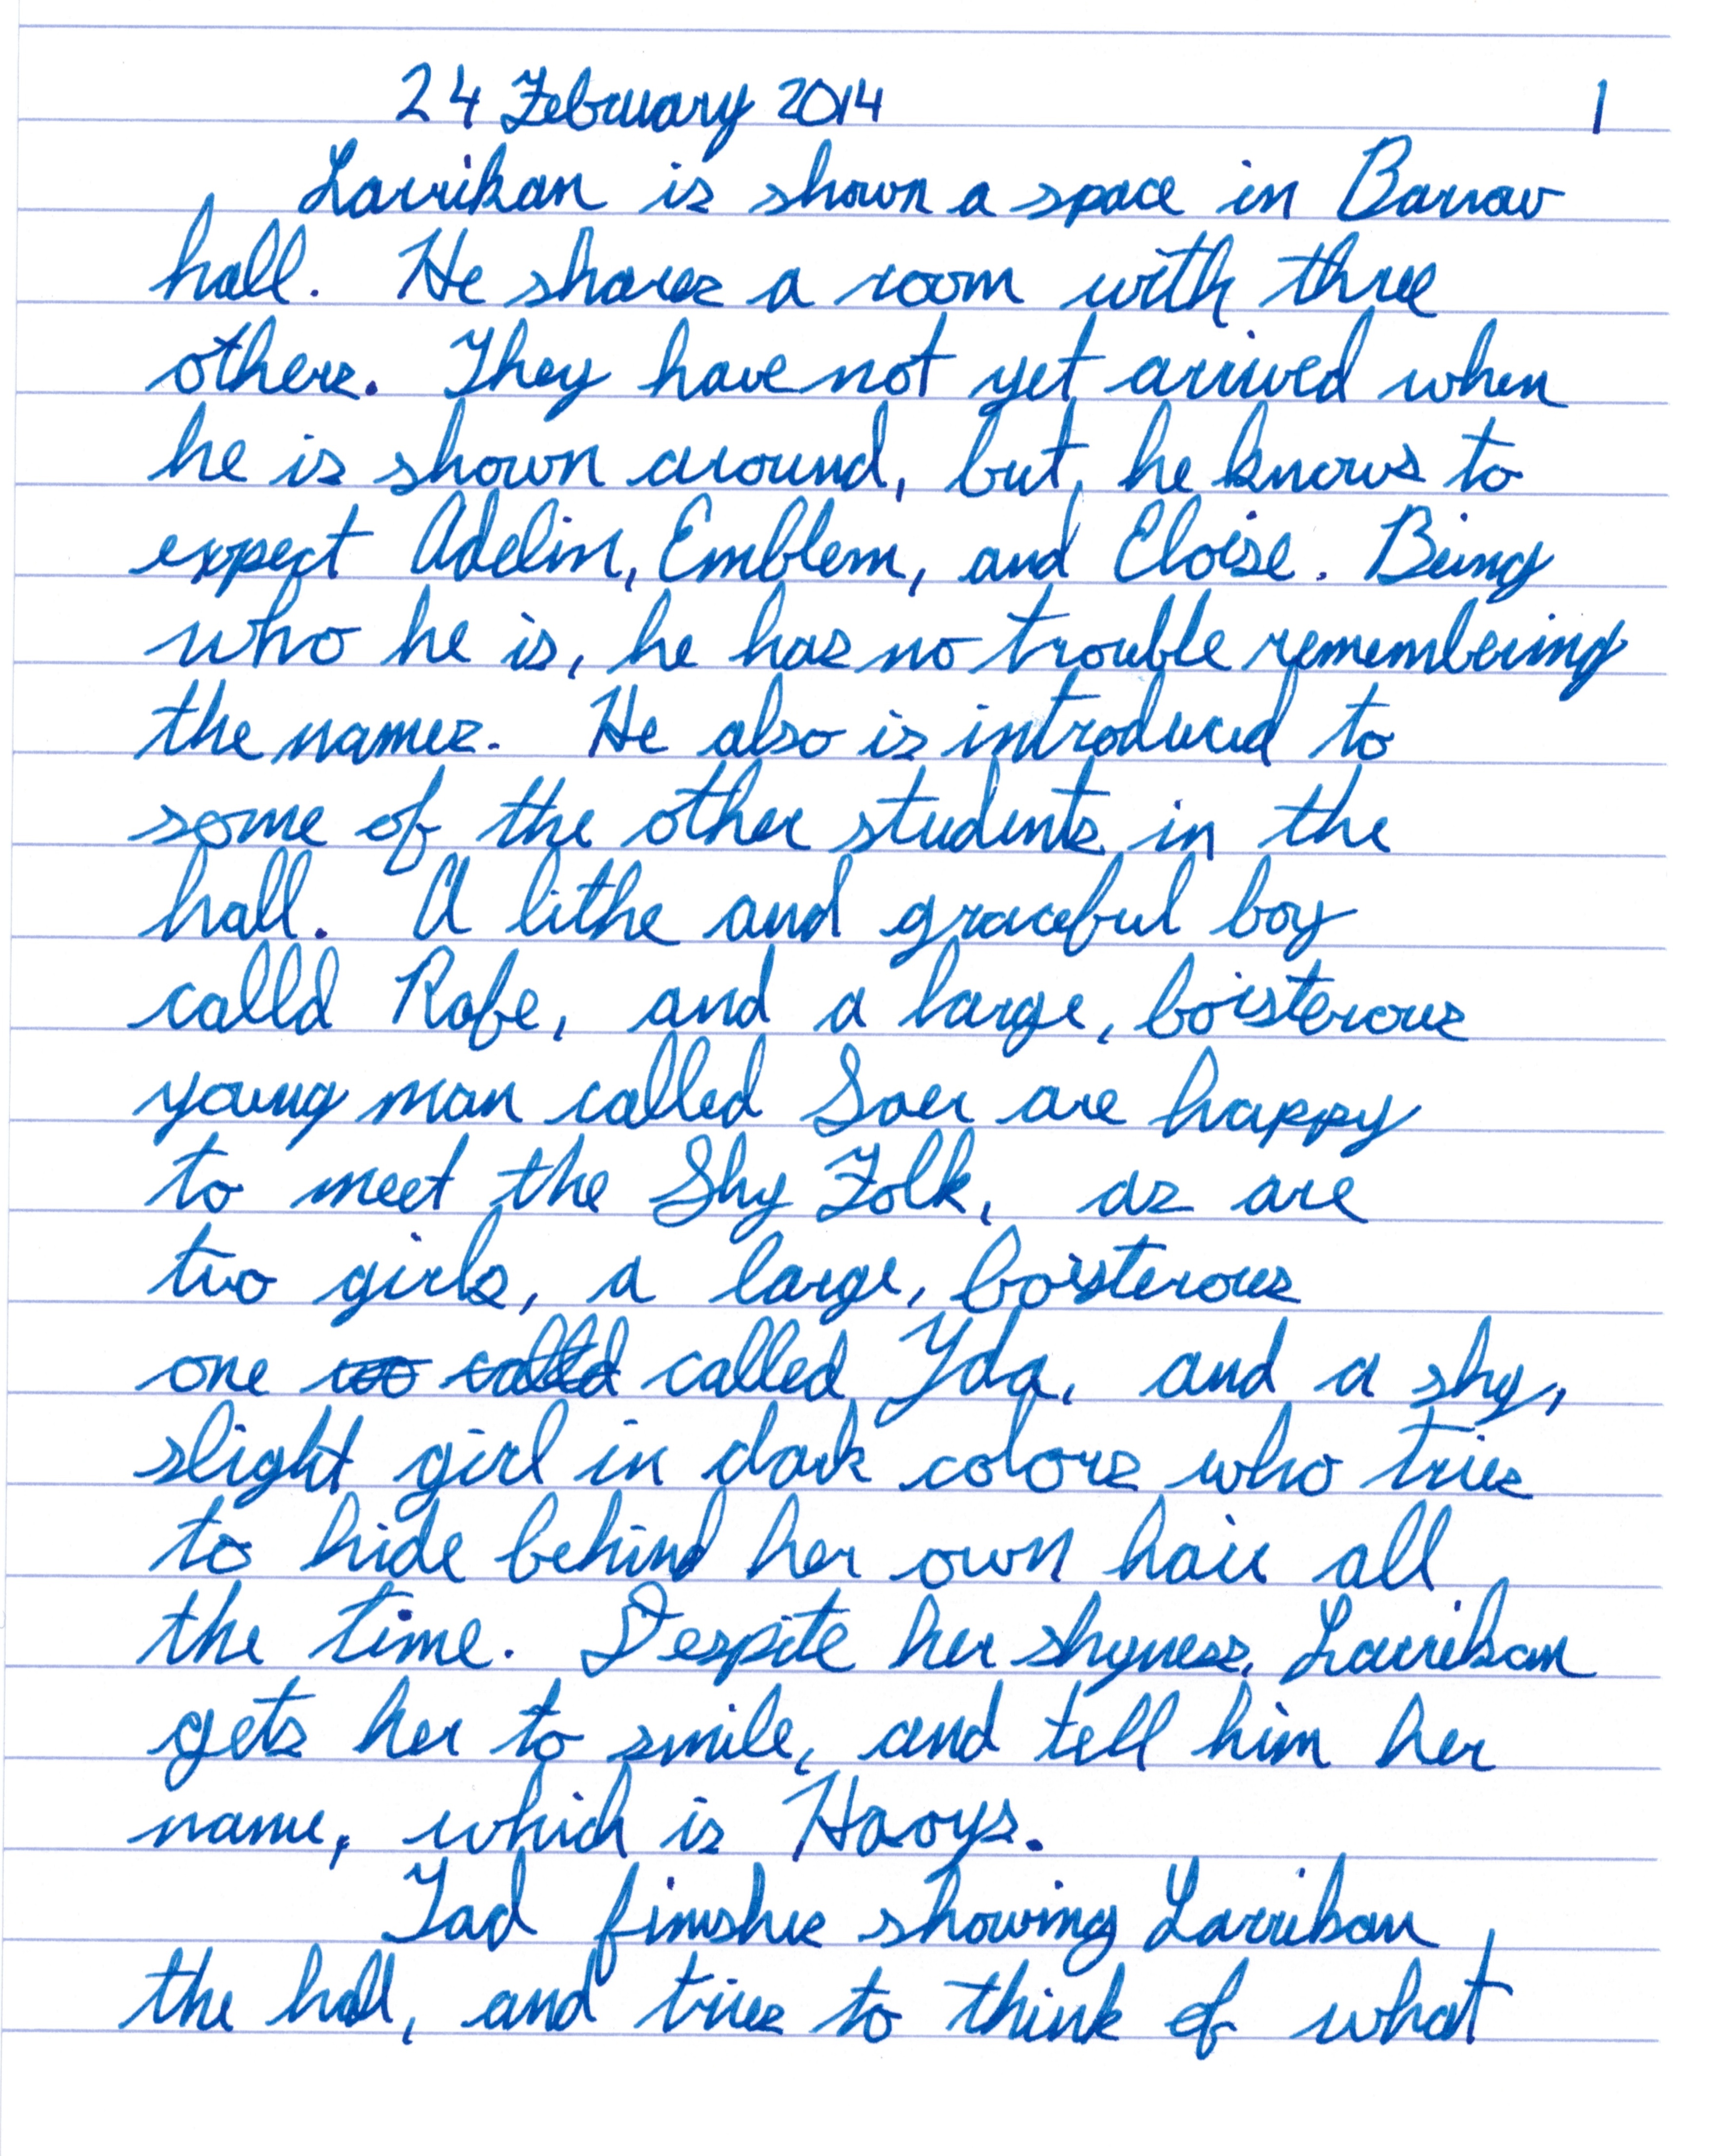 24 February 2014 1
Larrikan is shown a space in Barrow
hall. He shares a room with three
others. They have not yet arrived when
he is shown around, but he knows to
expect Adelin, Emblem, and Eloise. Being
who he is, he has no trouble remembering
the names. He also is introduced to
some of the other students in the
hall. A lithe and graceful boy
calld Rafe, and a large, boisterous
young man called Soer are happy
to meet the Shy Folk, as are
two girls, a large, boisterous
one called Yda, and a shy,
slight girl in dark colors who tries
to hide behind her own hair all
the time. Despite her shyness, Larrikan
gets her to smile, and tell him her
name, which is Haoys.
Tad finishes showing Larrikan
the hall, and tries to think of what